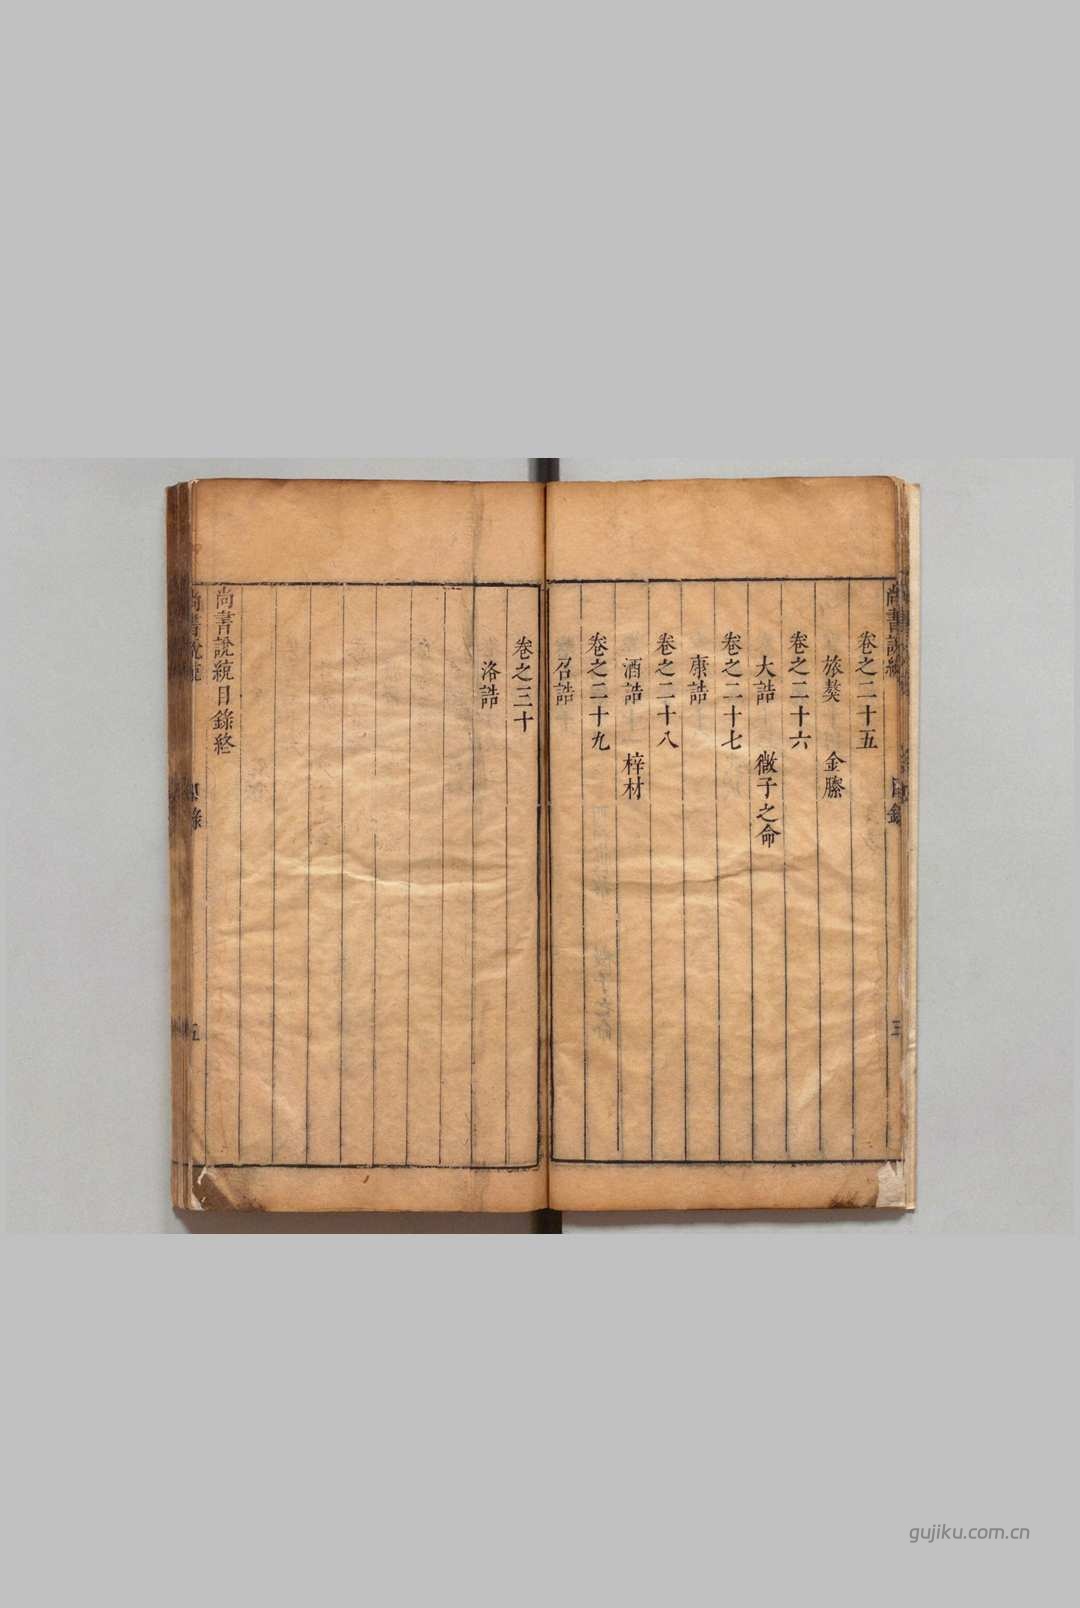 尚書說統
目錄
三
卷之二十五
旅獒 金縢
卷之二十六
大誥 微子之命
卷之二十七
康誥
卷之二十八
酒誥 梓材
卷之二十九
召誥
卷之三十
洛誥
尚書說統目錄終
尚書說統
目錄
五
gujiku.com.cn